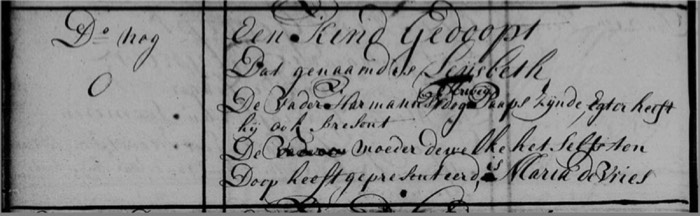 Do nog
Een Kind Gedoopt
Dat genaamd is Lijsbeth
De Vader Harmanus dog Paaps zijnde, Egter heeft
hij ook present
De moeder dewelke het selfs ten
Doop heeft gepresenteerd, is Maria de Vries